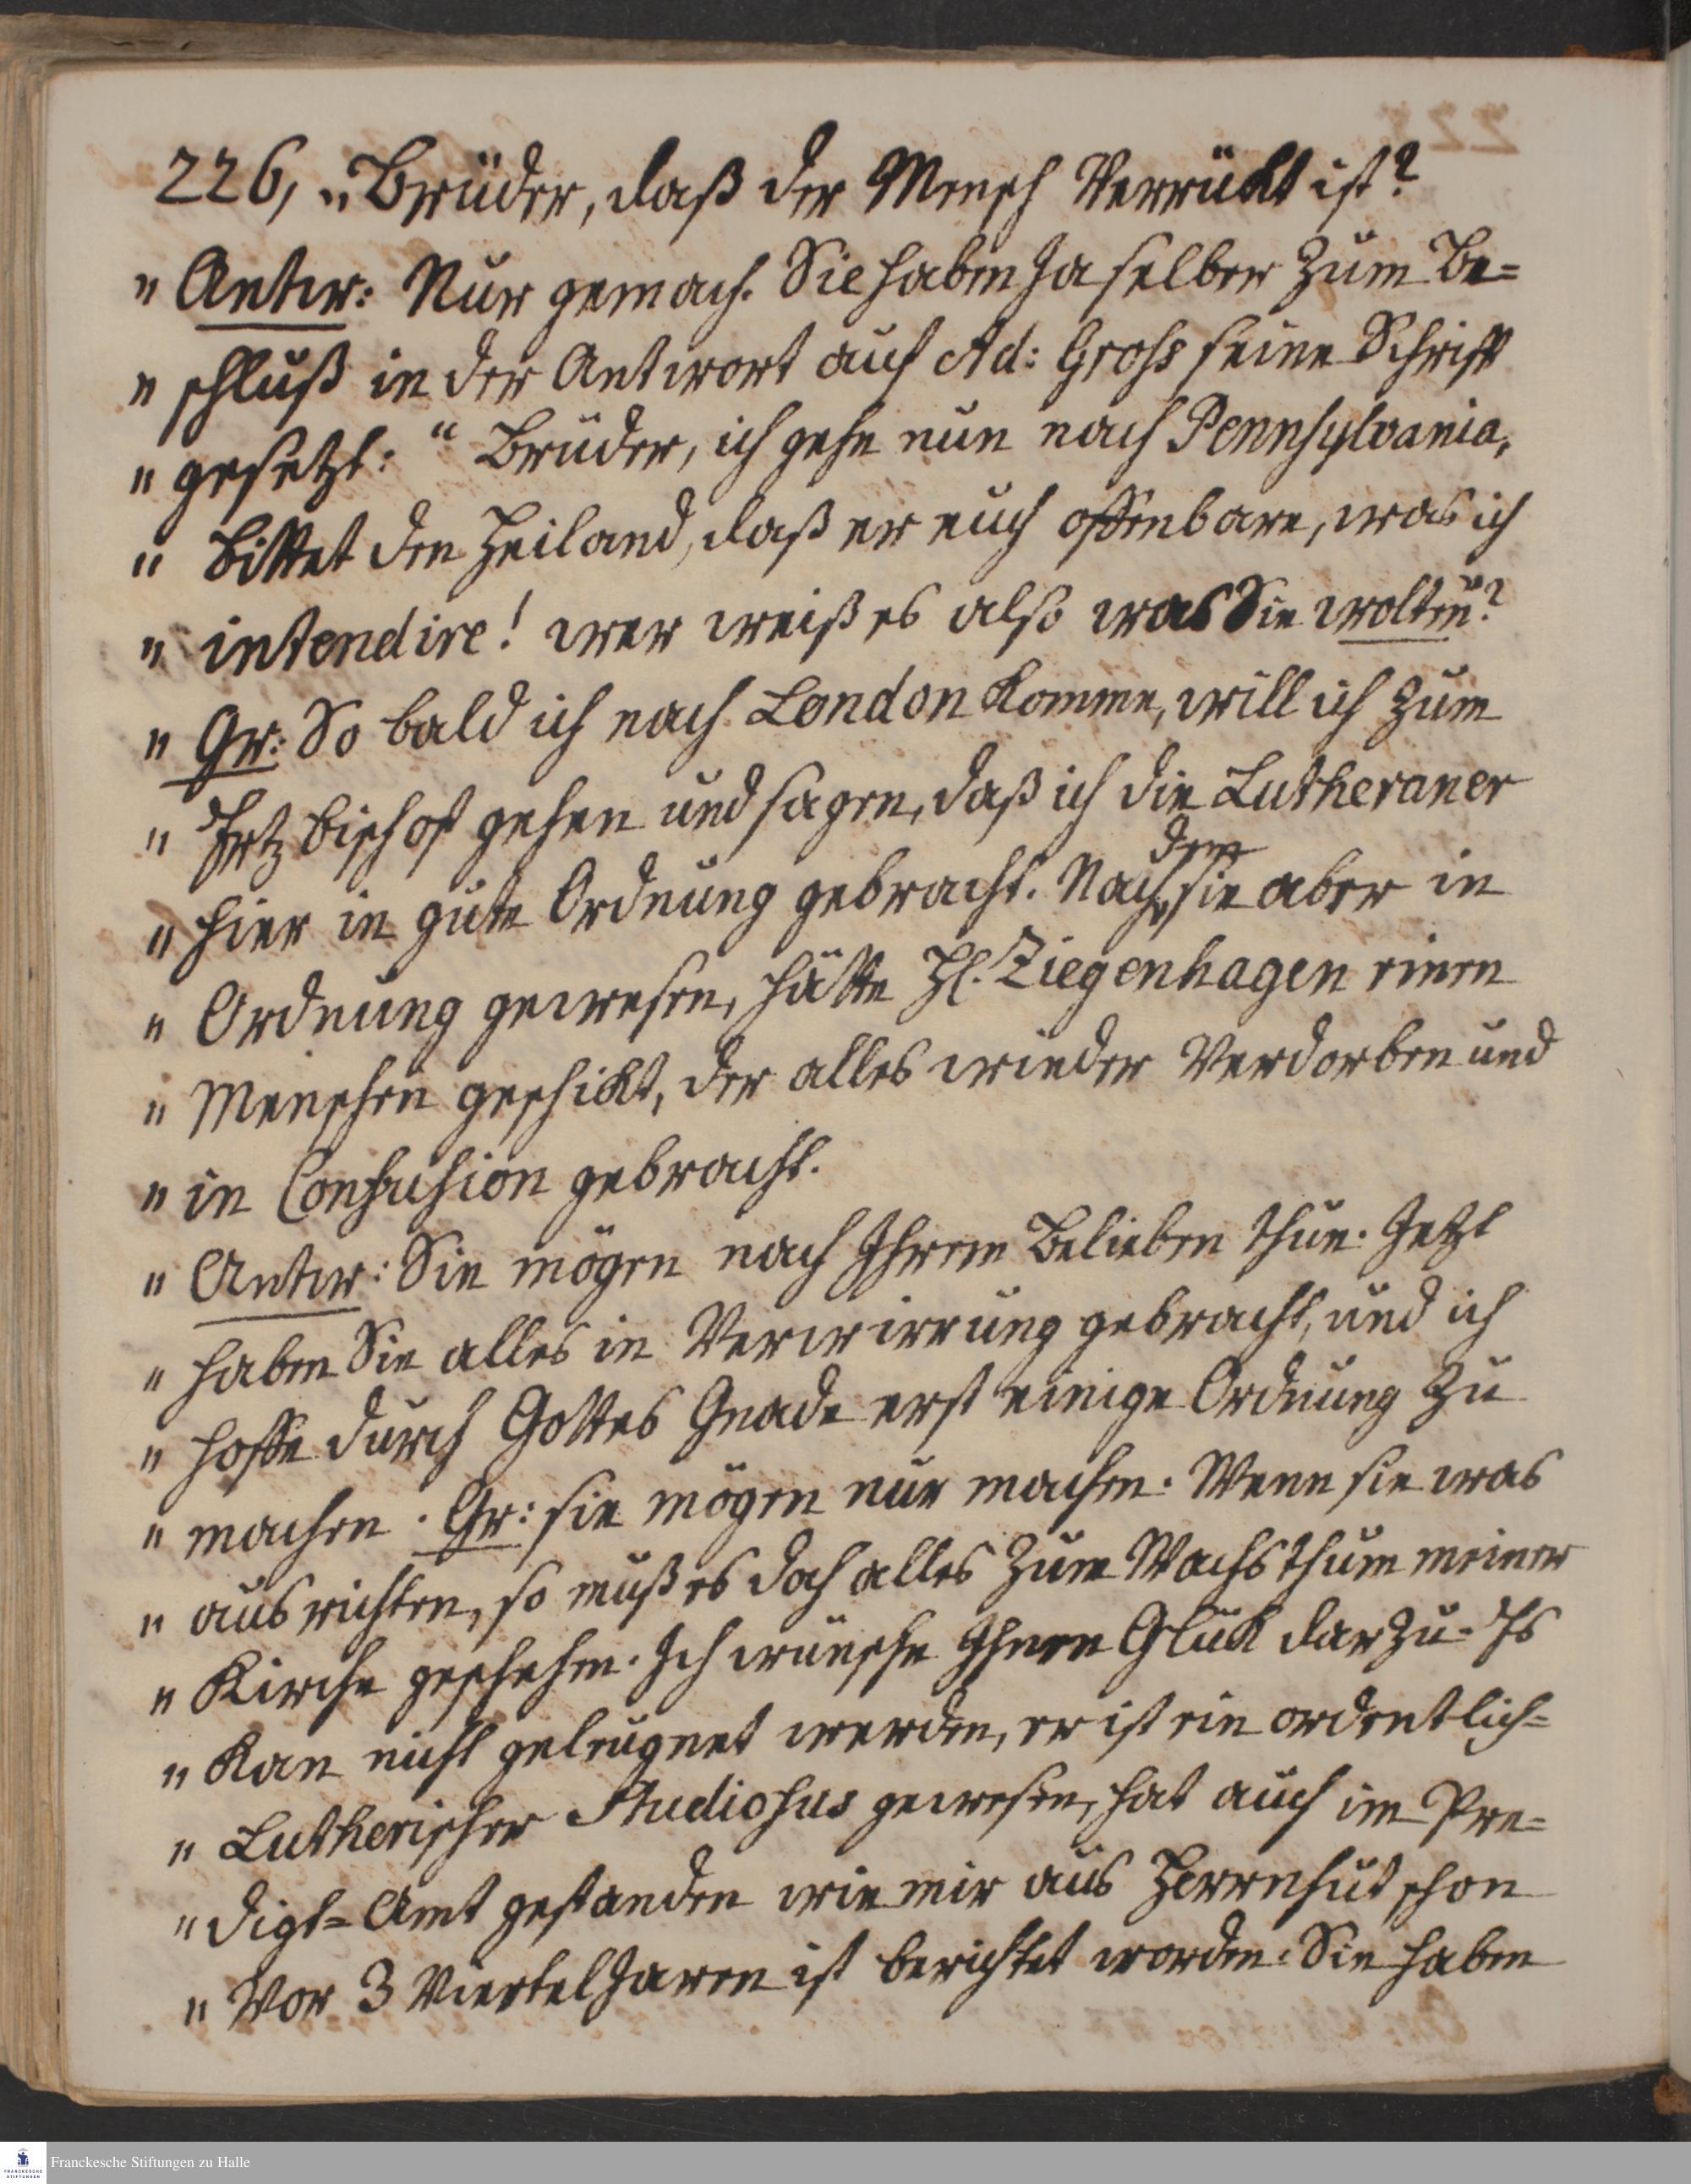 226, „Brüder, daß der Mensch Verrükt ist?
„ Antw: Nur gemach. Sie haben Ja selber Zum Be=
„ schluß in der Antwort auf Ad: Gross seine Schrift
„ gesetzt: “ Brüder, ich gehe nun nach Pennsylvania,
„ bittet den Heiland, daß er euch offenbare, was ich
„ intendire! wer weiß es also was Sie wolten“?
„ Gr: So bald ich nach London Komme, will ich Zum
„ Ertz bischof gehen und sagen, daß ich die Lutheraner
„ hier in gute Ordnung gebracht. Nachdem sie aber in
„ Ordnung gewesen, hätte H. Ziegenhagen einen
„ Menschen geschikt, der alles wieder Verdorben und
„ in Confusion gebracht.
„ Antw: Sie mögen nach Ihrem Belieben thun. Jetzt
„ haben Sie alles in Verwirrung gebracht, und ich
„ hoffe durch Gottes Gnade erst einige Ordnung Zu
„ machen. Gr: sie mögen nur machen. Wenn sie was
„ aus richten, so muß es doch alles Zum Wachsthum meiner
„ Kirche geschehen. Ich wünsche Ihnen Glük dar Zu. Es
„ Kan nicht geleugnet werden, er ist ein ordentlich=
„ Lutherischer Studiosus gewesen, hat auch im Pre=
„ digt=Amt gestanden wie mir aus Herrnhut schon
„ Vor 3 Viertel Jaren ist berichtet worden. Sie haben
Franckesche Stiftungen zu Halle
FRANCKESCHE
STIFTUNGEN